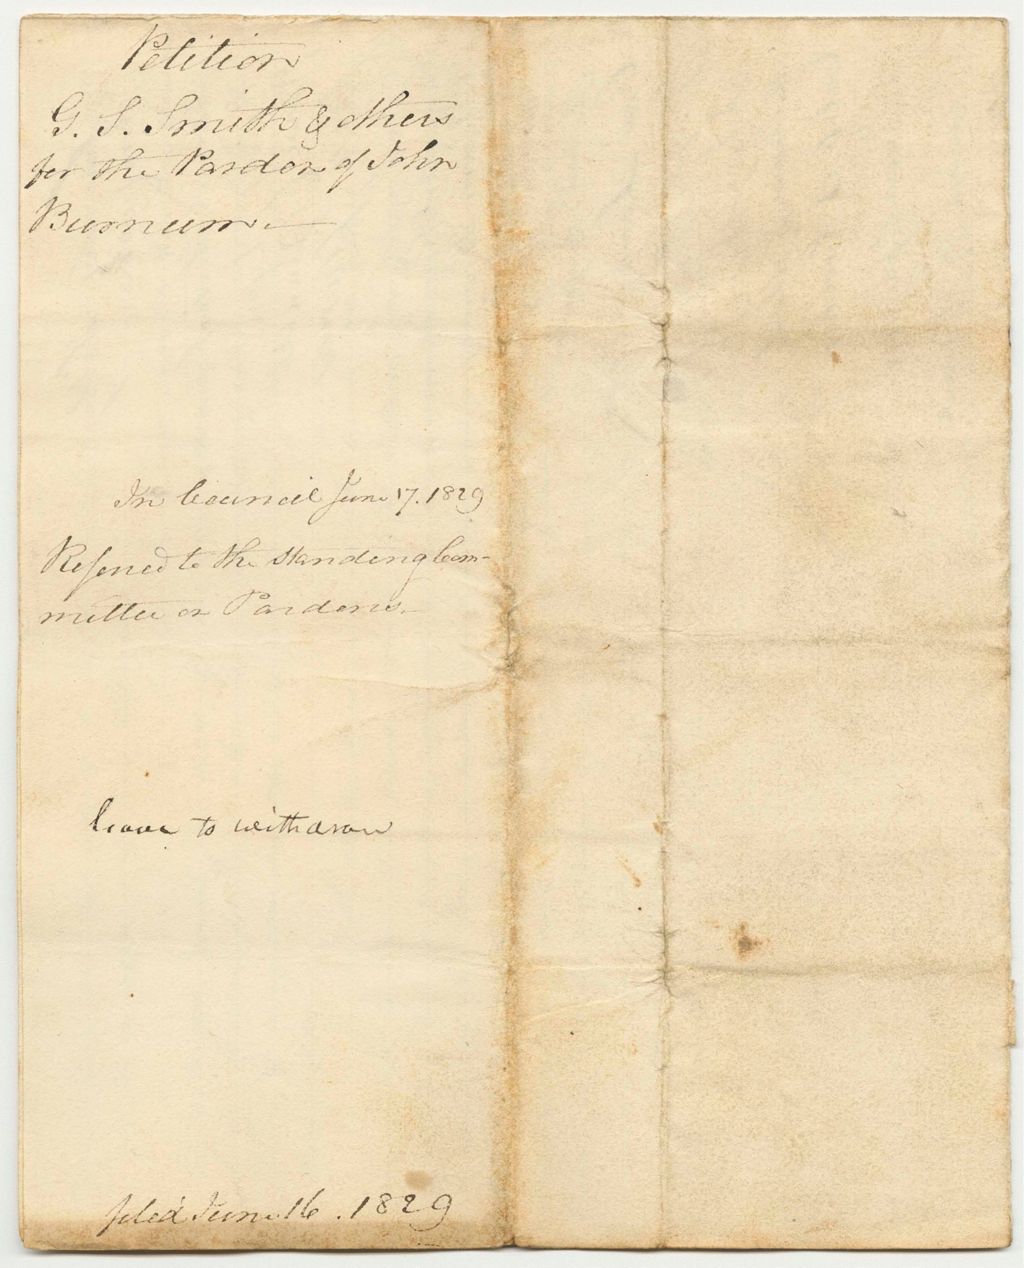 Petition
G. S. Smith & others
for the Pardon of John
Burnum.
In Council June 17. 1829
Referred to the standing Com-
mittee on Pardons.
leave to withdraw
filed June 16. 1829